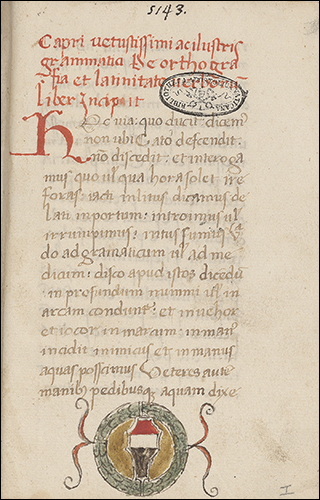 5143.
Capri vetustissimi ac ilustris
grammatici De orthogra
fia et lattinitate verborum
liber Incipit
Hec via: quo ducit: dicem
non ubi Caio descendit:
nō discedit: et interoga
mus quo ul' qua hora solet ire
foras: iacti in litus dicamus de
lati in portum: introimus ul'
irrumpimus: intus sumus
do ad gramaticum ul' ad me
dicum: disco apud istos dicedū
in profundum nummi
arcam condunt: et in uchor
et iocor in marcum: in manꝰ
incidit inimicus et in manus
aquas possimus Veteres aute
manibꝰ pedibusq aquam dixe
I